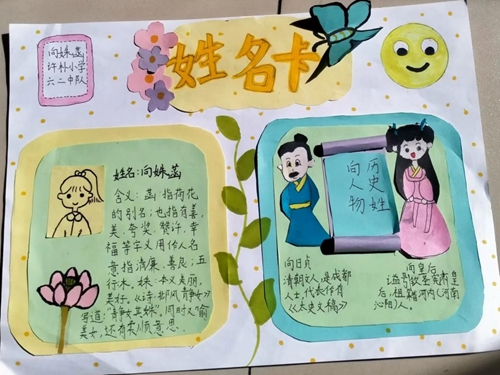 向姝菡
许朴小学
六二中队
姓名卡
姓名:向姝菡
含义:菡:指荷花
的别名;也指有喜、
美、夸奖、赞许、幸
福等字义用作人名
意指清廉、善良;五
行木。姝:本义美丽,
美好。《诗·邶风·静女》
写道:“静女其姝”,同时又喻
美女,还有柔顺意思。
历史向姓
人物
向日贞
清朝文人,四川成都
人士,代表作有
《太史文稿》
向皇后
谥号钦圣宪肃皇
后,祖籍河内(河南
沁阳)人。